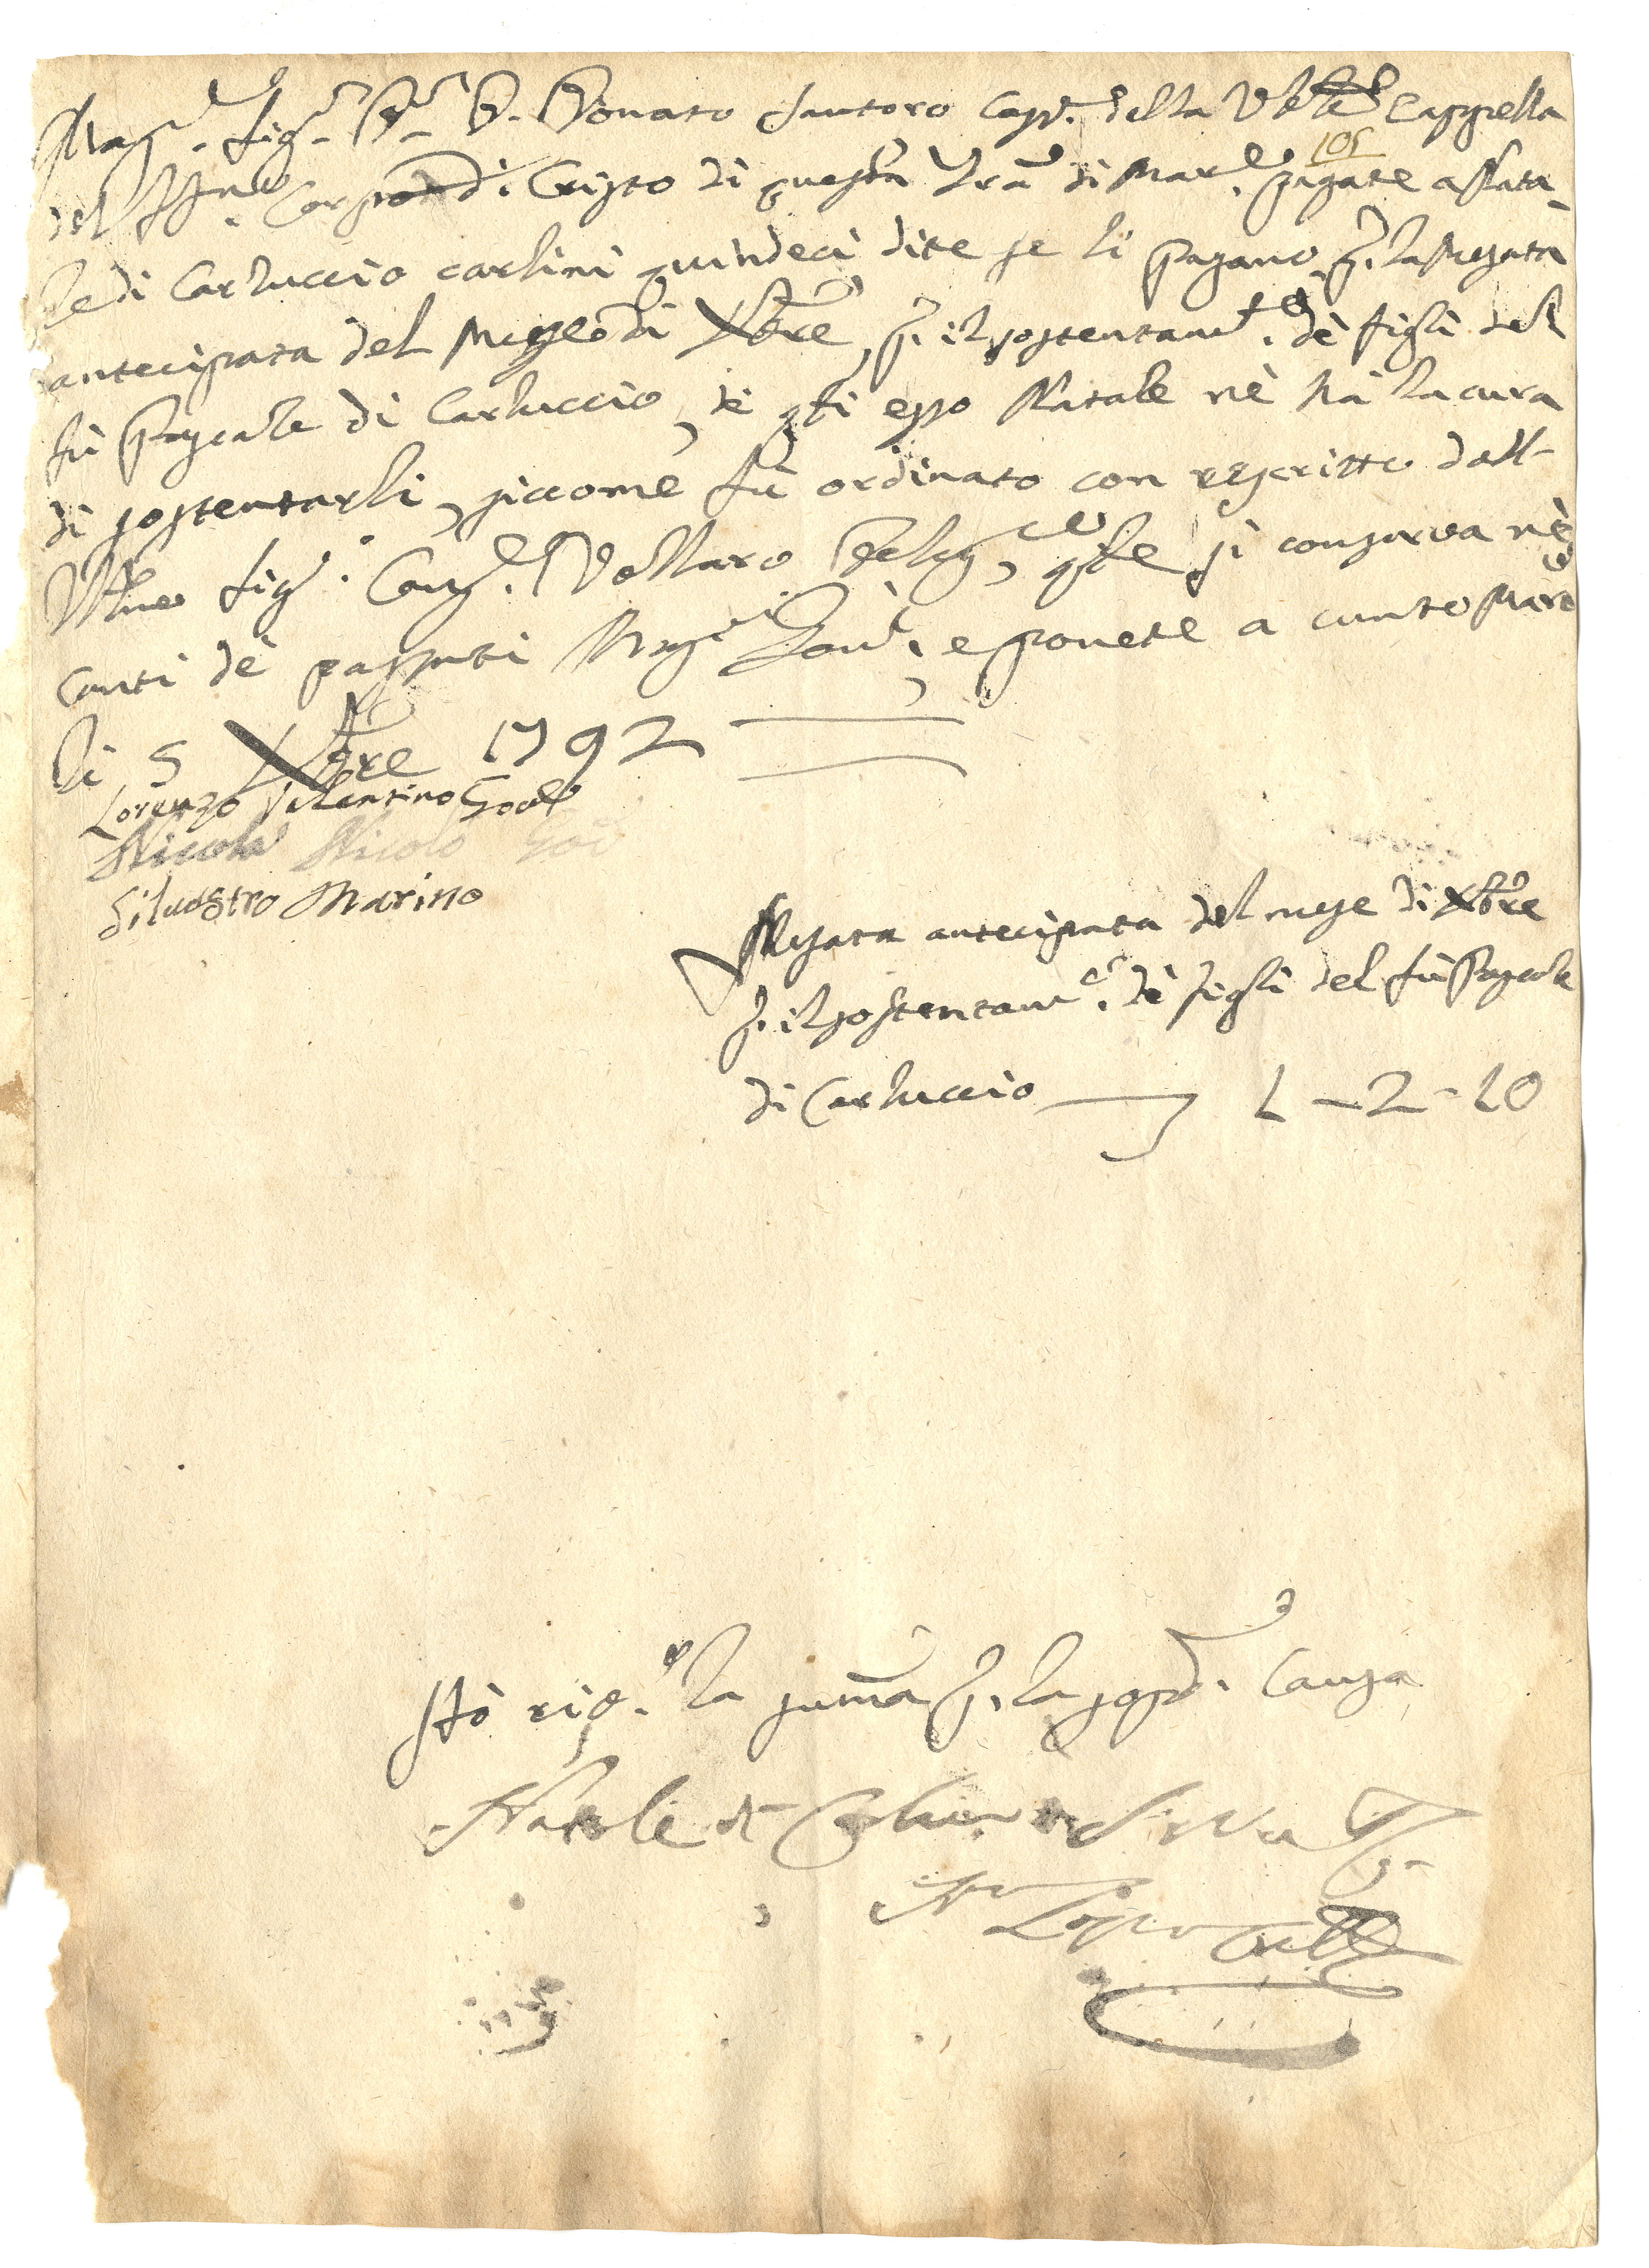 Mag.co Sig.r D.r D. Donato Santoro Capp.o della Vble Cappella
105
del SSmo. Corpo di Cristo di questa Trà di Mar.e pagate a Nata-
le di Carluccio carlini quindeci dite se li pagano p. la Mesata
antecipata del Mese di Xbre, p. il sostentam.to dè figli del
fù Pascale di Carluccio, dè qli esso Natale nè hà la cura
di sostentarli, siccome fù ordinato con rescritto dall-
Illmo Sig.r Cons.e Vollaro Deleg.to, qle si conserva nè
Conti dè passati Mag.ci Gov.ri, e ponete a cunto Mar.e
li 5 Xbre 1792
Lorenzo Valentino Gov.e
Nicola Nicolo Gov
Siluestro Marino
Mesata antecipata del mese di Xbre
p. il sostentam.to dè figli del fù Pascale
di Carluccio 1-2-10
Hò ric.to la summa p. la sopd.a Causa
Natale di Carluccio